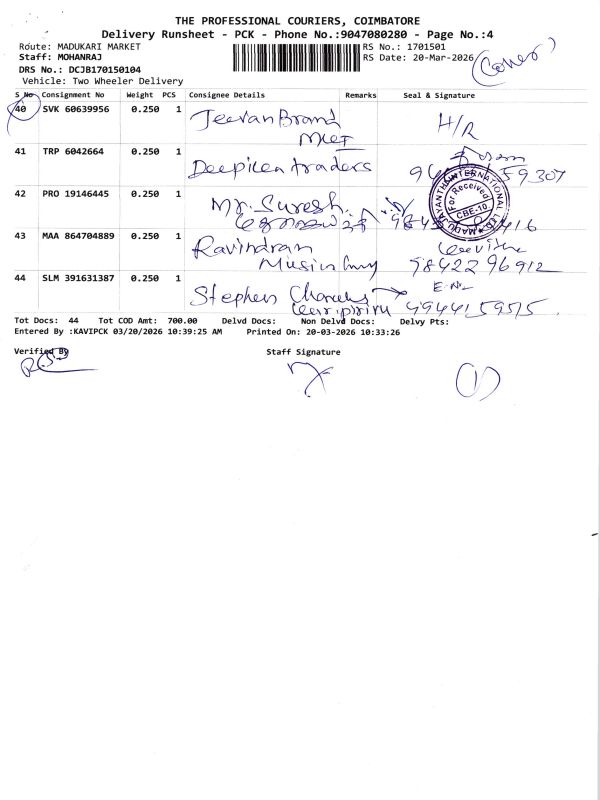 THE PROFESSIONAL COURIERS, COIMBATORE
Delivery Runsheet - PCK - Phone No.:9047080280 - Page No.:4
Route: MADUKARI MARKET RS No.: 1701501
Staff: MOHANRAJ RS Date: 20-Mar-2026
DRS No.: DCJB170150104
Vehicle: Two Wheeler Delivery
S No Consignment No Weight PCS Consignee Details Remarks Seal & Signature
40 SVK 60639956 0.250 1 Jeevan Brand H/R
41 TRP 6042664 0.250 1 Deepika traders
42 PRO 19146445 0.250 1 Mr. Suresh.
For Received
CBE-10
43 MAA 864704889 0.250 1 Ravindran
98422 96912
44 SLM 391631387 0.250 1 Stephen
Tot Docs: 44 Tot COD Amt: 700.00 Delvd Docs: Non Delvd Docs: Delvy Pts:
Entered By :KAVIPCK 03/20/2026 10:39:25 AM Printed On: 20-03-2026 10:33:26
Verified By Staff Signature